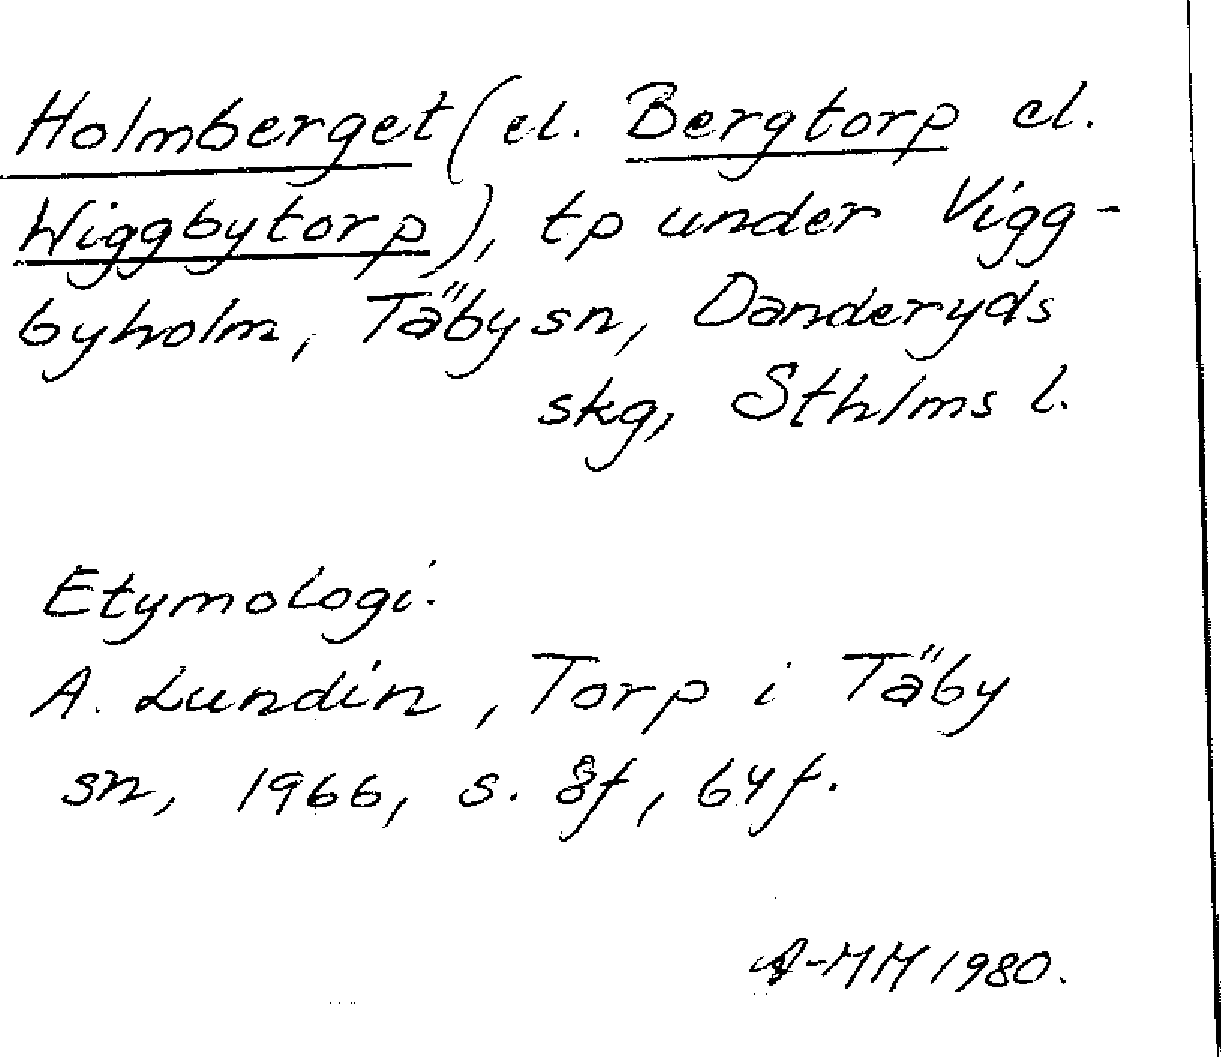 Holmberget (el. Bergtorp el.
Wiggbytorp), tp under Vigg-
byholm, Täby sn, Danderyds
skg, Sthlms l.
Etymologi:
A. Lundin, Torp i Täby
sn, 1966, s. 8f, 64f.
A-MM 1980.